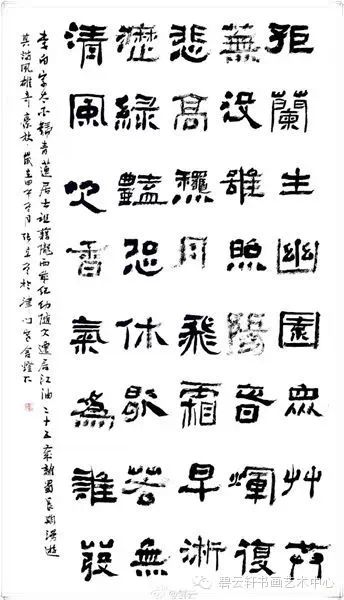 孤蘭生幽園眾艸共
蕪沒雖照陽春暉復
悲高穐月飛霜早淅
瀝綠豔恐休歇若無
清風吹香氣為誰發
李白字太白號青蓮居士祖籍隴西成紀幼隨父遷居江油二十五歲離蜀長期漫遊
其詩風雄奇豪放 歲在甲午 月 於津門 燈下
碧云轩书画艺术中心